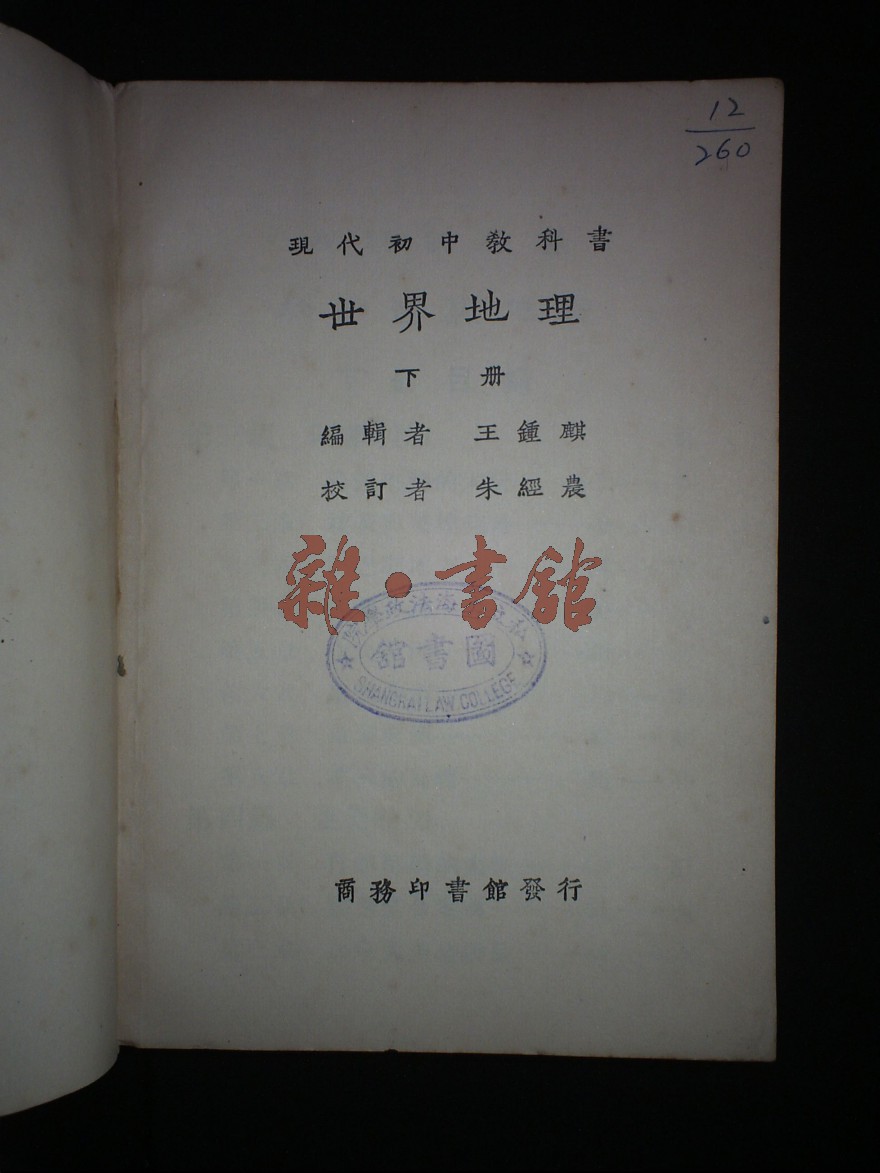 12
260
現代初中教科書
世界地理
下册
編輯者 王鍾麒
校訂者 朱經農
雜·書館
圖書館
SHANGHAI LAW COLLEGE
商務印書館發行